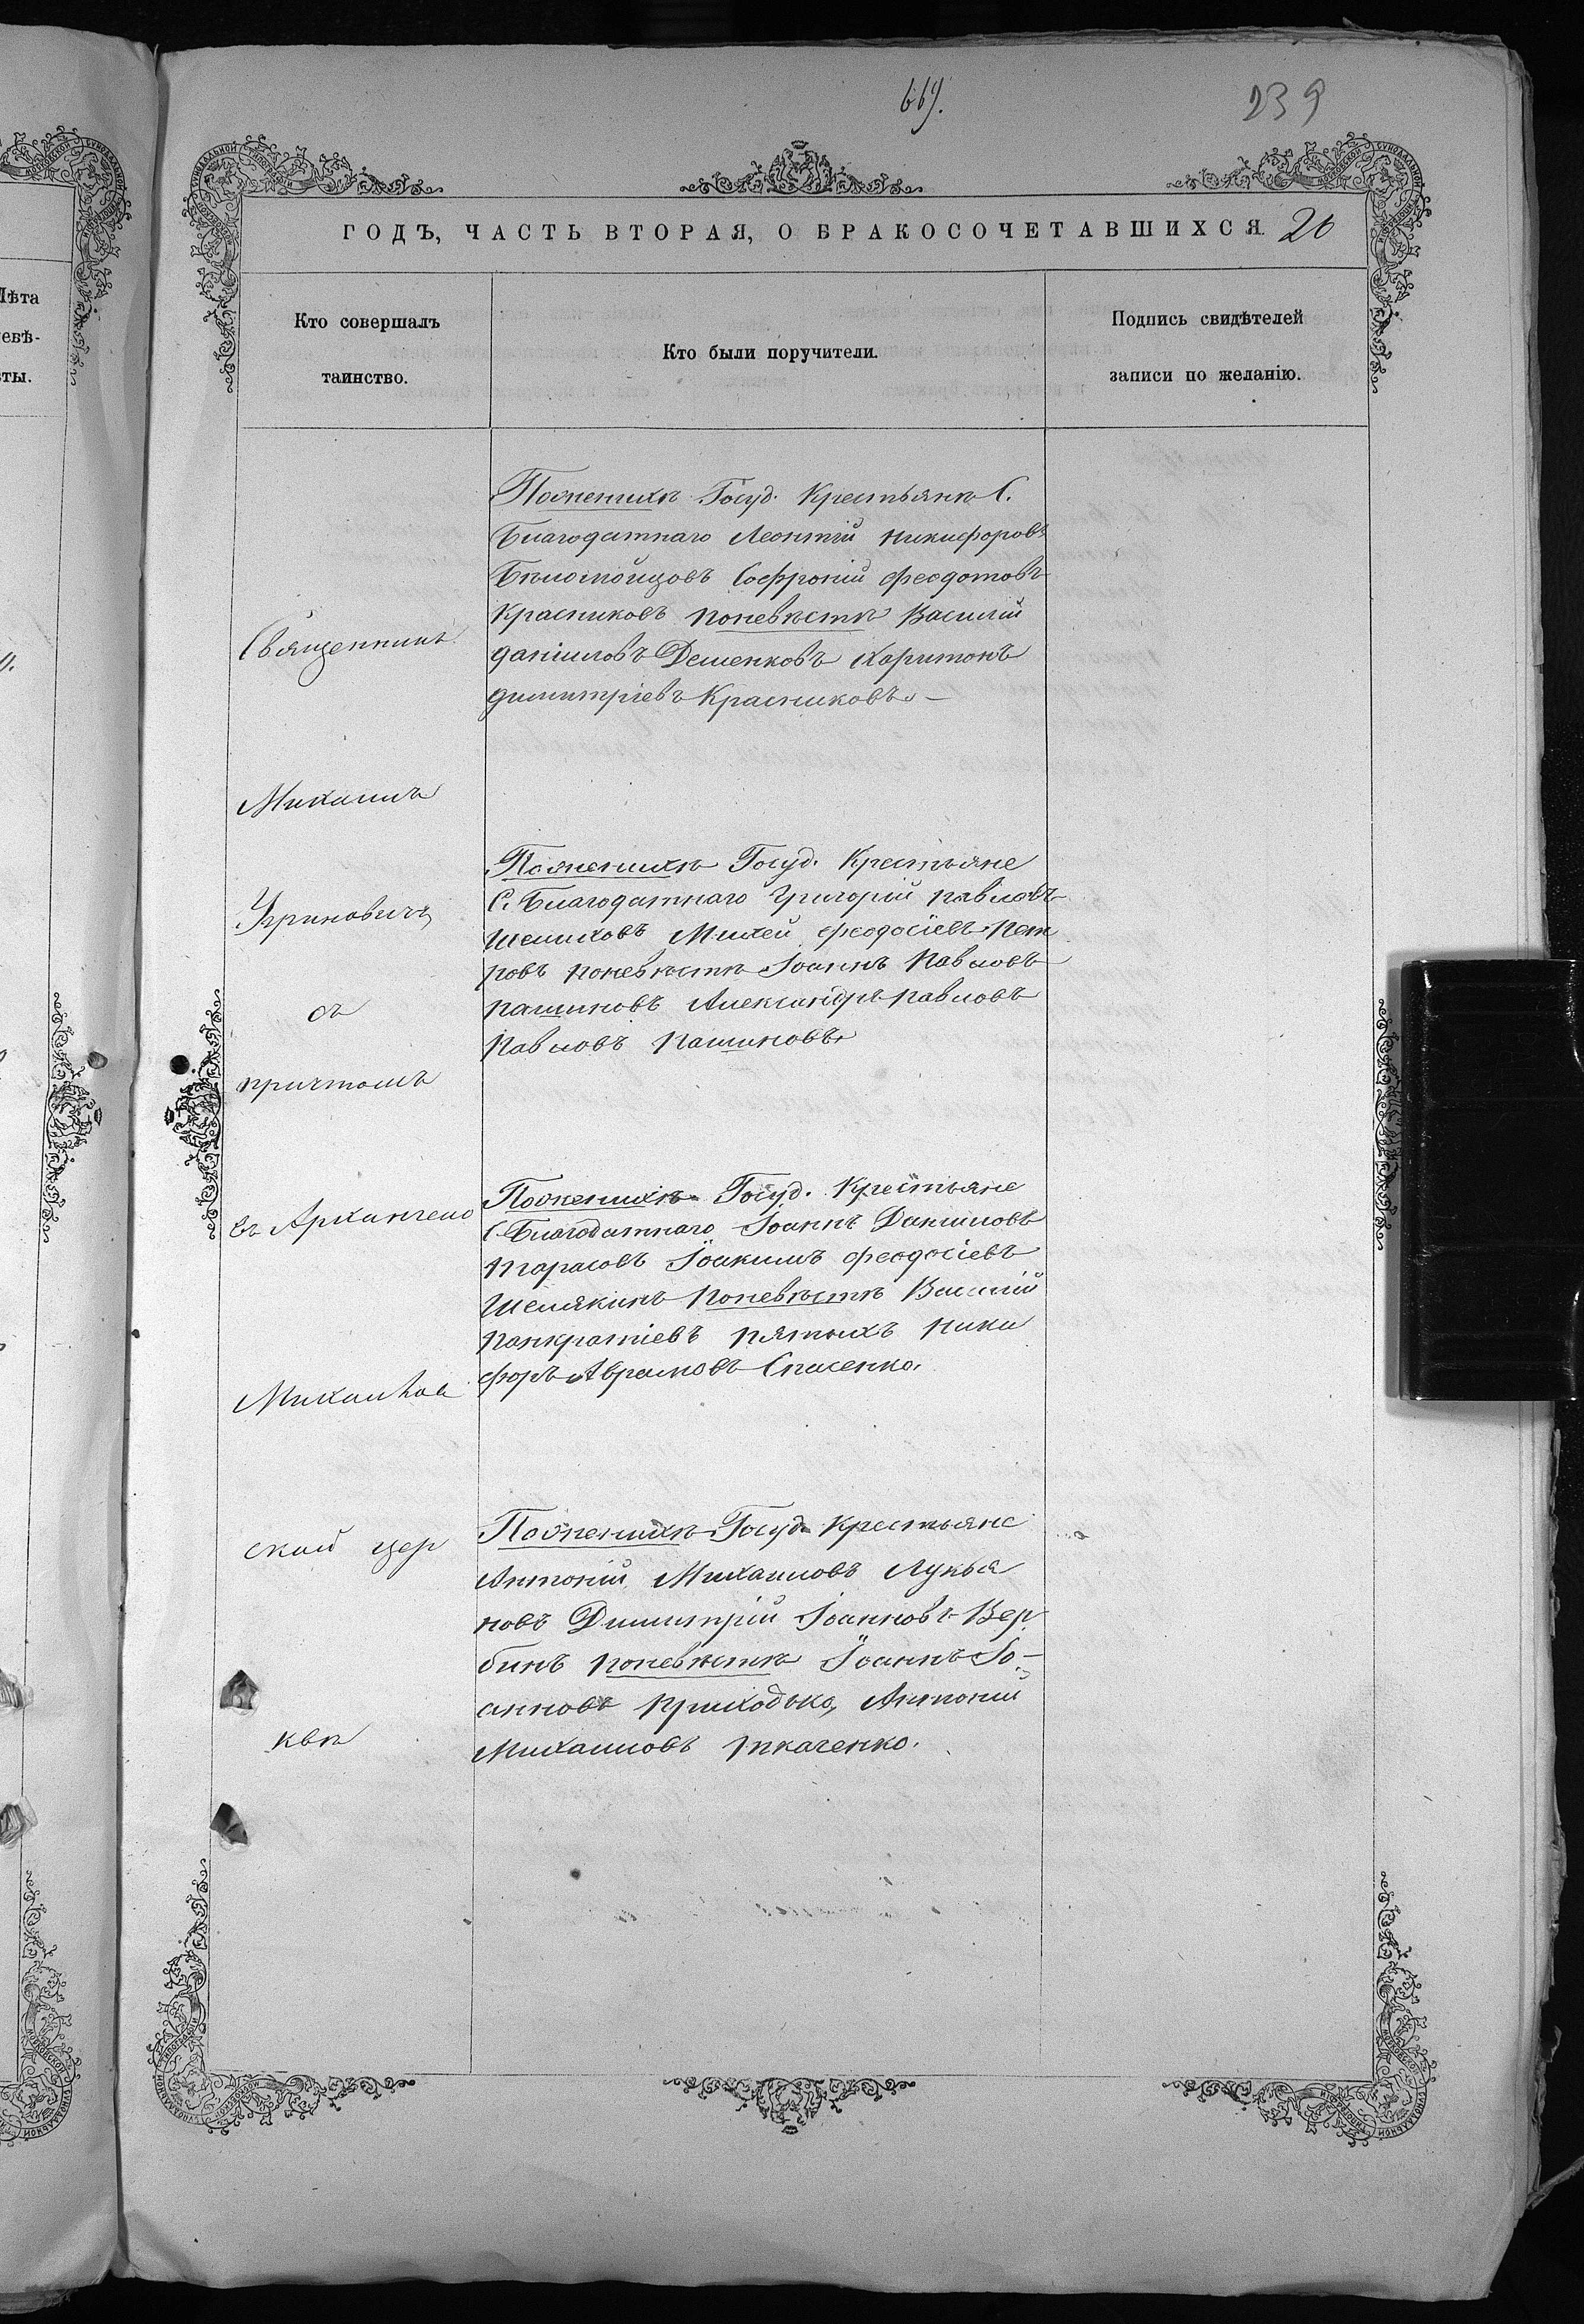 669.
239
ГОДЪ, ЧАСТЬ ВТОРАЯ, О БРАКОСОЧЕТАВШИХСЯ. 20
Лѣта
невѣ-
сты.
Кто совершалъ
таинство.
Кто были поручители.
Подпись свидѣтелей
записи по желанію.
Священникъ
Михаилъ
Угриновичъ
съ
причтомъ
въ Архангело
Михайлов
ской цер
квѣ
Поженихѣ Госуд. Крестьянѣ С.
Благодатнаго Леонтій Никифоровъ
Софроній Феодотовъ
Красниковъ поневѣстѣ Василій
Даніиловъ Деменковъ Харитонъ
Димитріевъ Красниковъ. –
Поженихѣ Госуд. Крестьяне
С. Благодатнаго Григорій Павловъ
Шелиховъ Михей Феодосіевъ Пет
ровъ поневѣстѣ Іоаннъ Павловъ
Пашиновъ Александръ Павловъ
Павловъ Пашиновъ.
Поженихѣ Госуд. Крестьяне
С. Благодатнаго Іоаннъ Даниловъ
Тарасовъ Іоакимъ Феодосіевъ
Шемякинъ поневѣстѣ Василій
Панкратіевъ Пятыхъ Ники
форъ Аврамовъ Спасенко.
Поженихѣ Госуд. Крестьяне
Антоній Михаиловъ Лукья
новъ Димитрій Іоанновъ Вер
бинъ поневѣстѣ Іоаннъ Іо-
анновъ Приходько, Антоній
Михаиловъ Ткаченко.